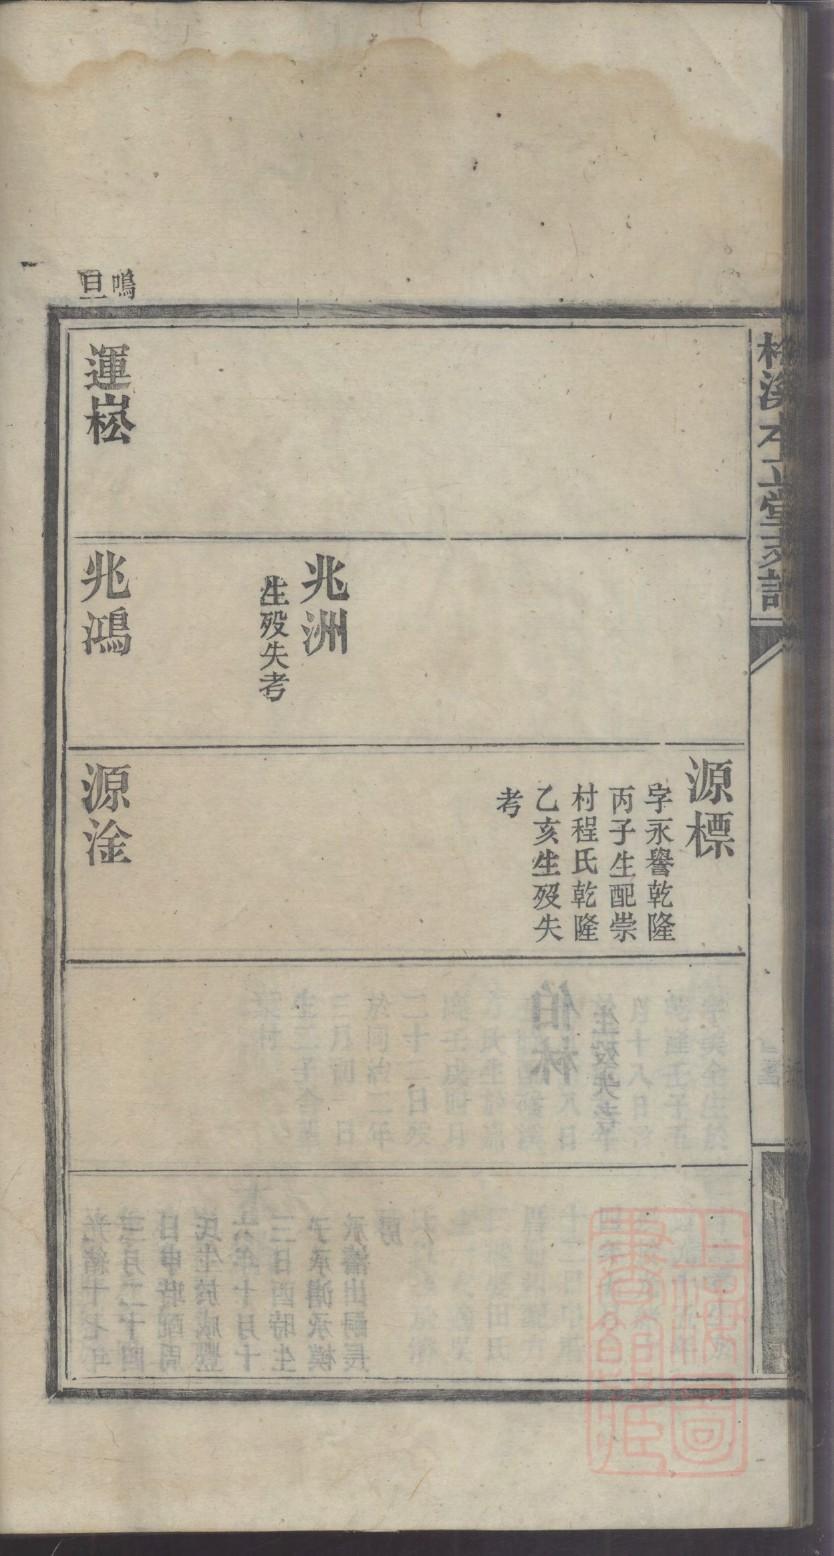 溪本立堂支譜
鳴旦
運崧
兆洲
生歿失考
兆鴻
源標
字永譽乾隆
丙子生配崇
村程氏乾隆
乙亥生歿失
考
源淦
上海圖
書館藏